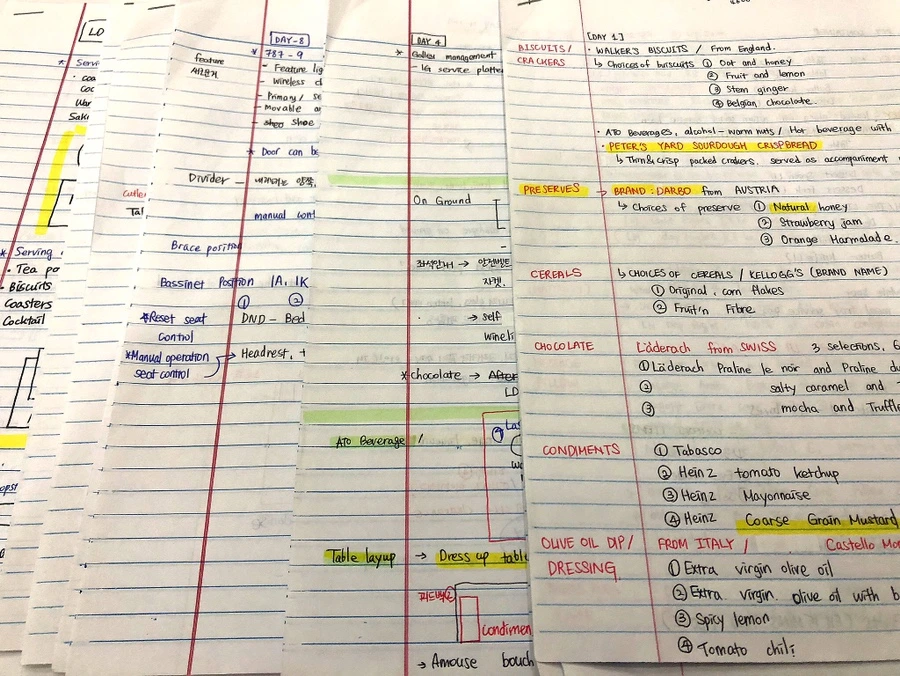 LD
* Servi
Coc
War
Saki
* Serving
• Tea po
• Biscuits
Coasters
Cocktail
Cutler
Tal
DAY-8
* 787-9
feature
- Feature lig
- Wireless c
- Primary / se
- Movable a
- shoe Shoe
* Door can be
Divider - 내려가는
manual cont
Brace position
Bassinet Position 1A, 1K
① ②
*Reset seat control
DND - Bed
*Manual operation seat control → Headrest, +
DAY 4
* Galley management
- IG service platte
On Ground
좌석안내 → 안전벨트
자켓.
→ self
Wineli
*chocolate → After
LD
ATO Beverage /
Table layup → Dress up table
condimen
→ Amouse bouch
[DAY 1]
BISCUITS / CRACKERS
• WALKER'S BISCUITS / From England.
↳ Choices of biscuits ① Oat and honey
② Fruit and lemon
③ Stem ginger
④ Belgian chocolate.
• ATO Beverages, alcohol - warm nuts / Hot beverage with
• PETER'S YARD SOURDOUGH CRISPBREAD
↳ Thin & crisp packed crakers. served as accompaniment
PRESERVES → BRAND : DARBO from AUSTRIA
↳ Choices of preserve ① Natural honey
② Strawberry jam
③ Orange Marmalade.
CEREALS ↳ CHOICES OF CEREALS / KELLOGG'S (BRAND NAME)
① Original . corn flakes
② Fruit'n Fibre
CHOCOLATE Läderach from SWISS 3 selections, 6
① Läderach Praline le noir and Praline du
② salty caramel and
③ mocha and Truffl
CONDIMENTS ① Tabasco
② Heinz tomato ketchup
③ Heinz Mayonnaise
④ Heinz Coarse Grain Mustard
OLIVE OIL DIP / DRESSING FROM ITALY / Castello Mo
① Extra virgin olive oil
② Extra virgin. olive oil with b
③ Spicy lemon
④ Tomato chili